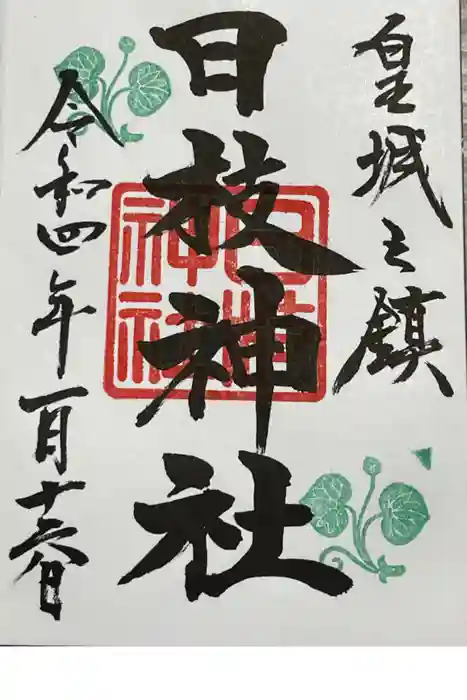 皇城之鎮
日枝神社
日枝神社
令和四年一月十六日